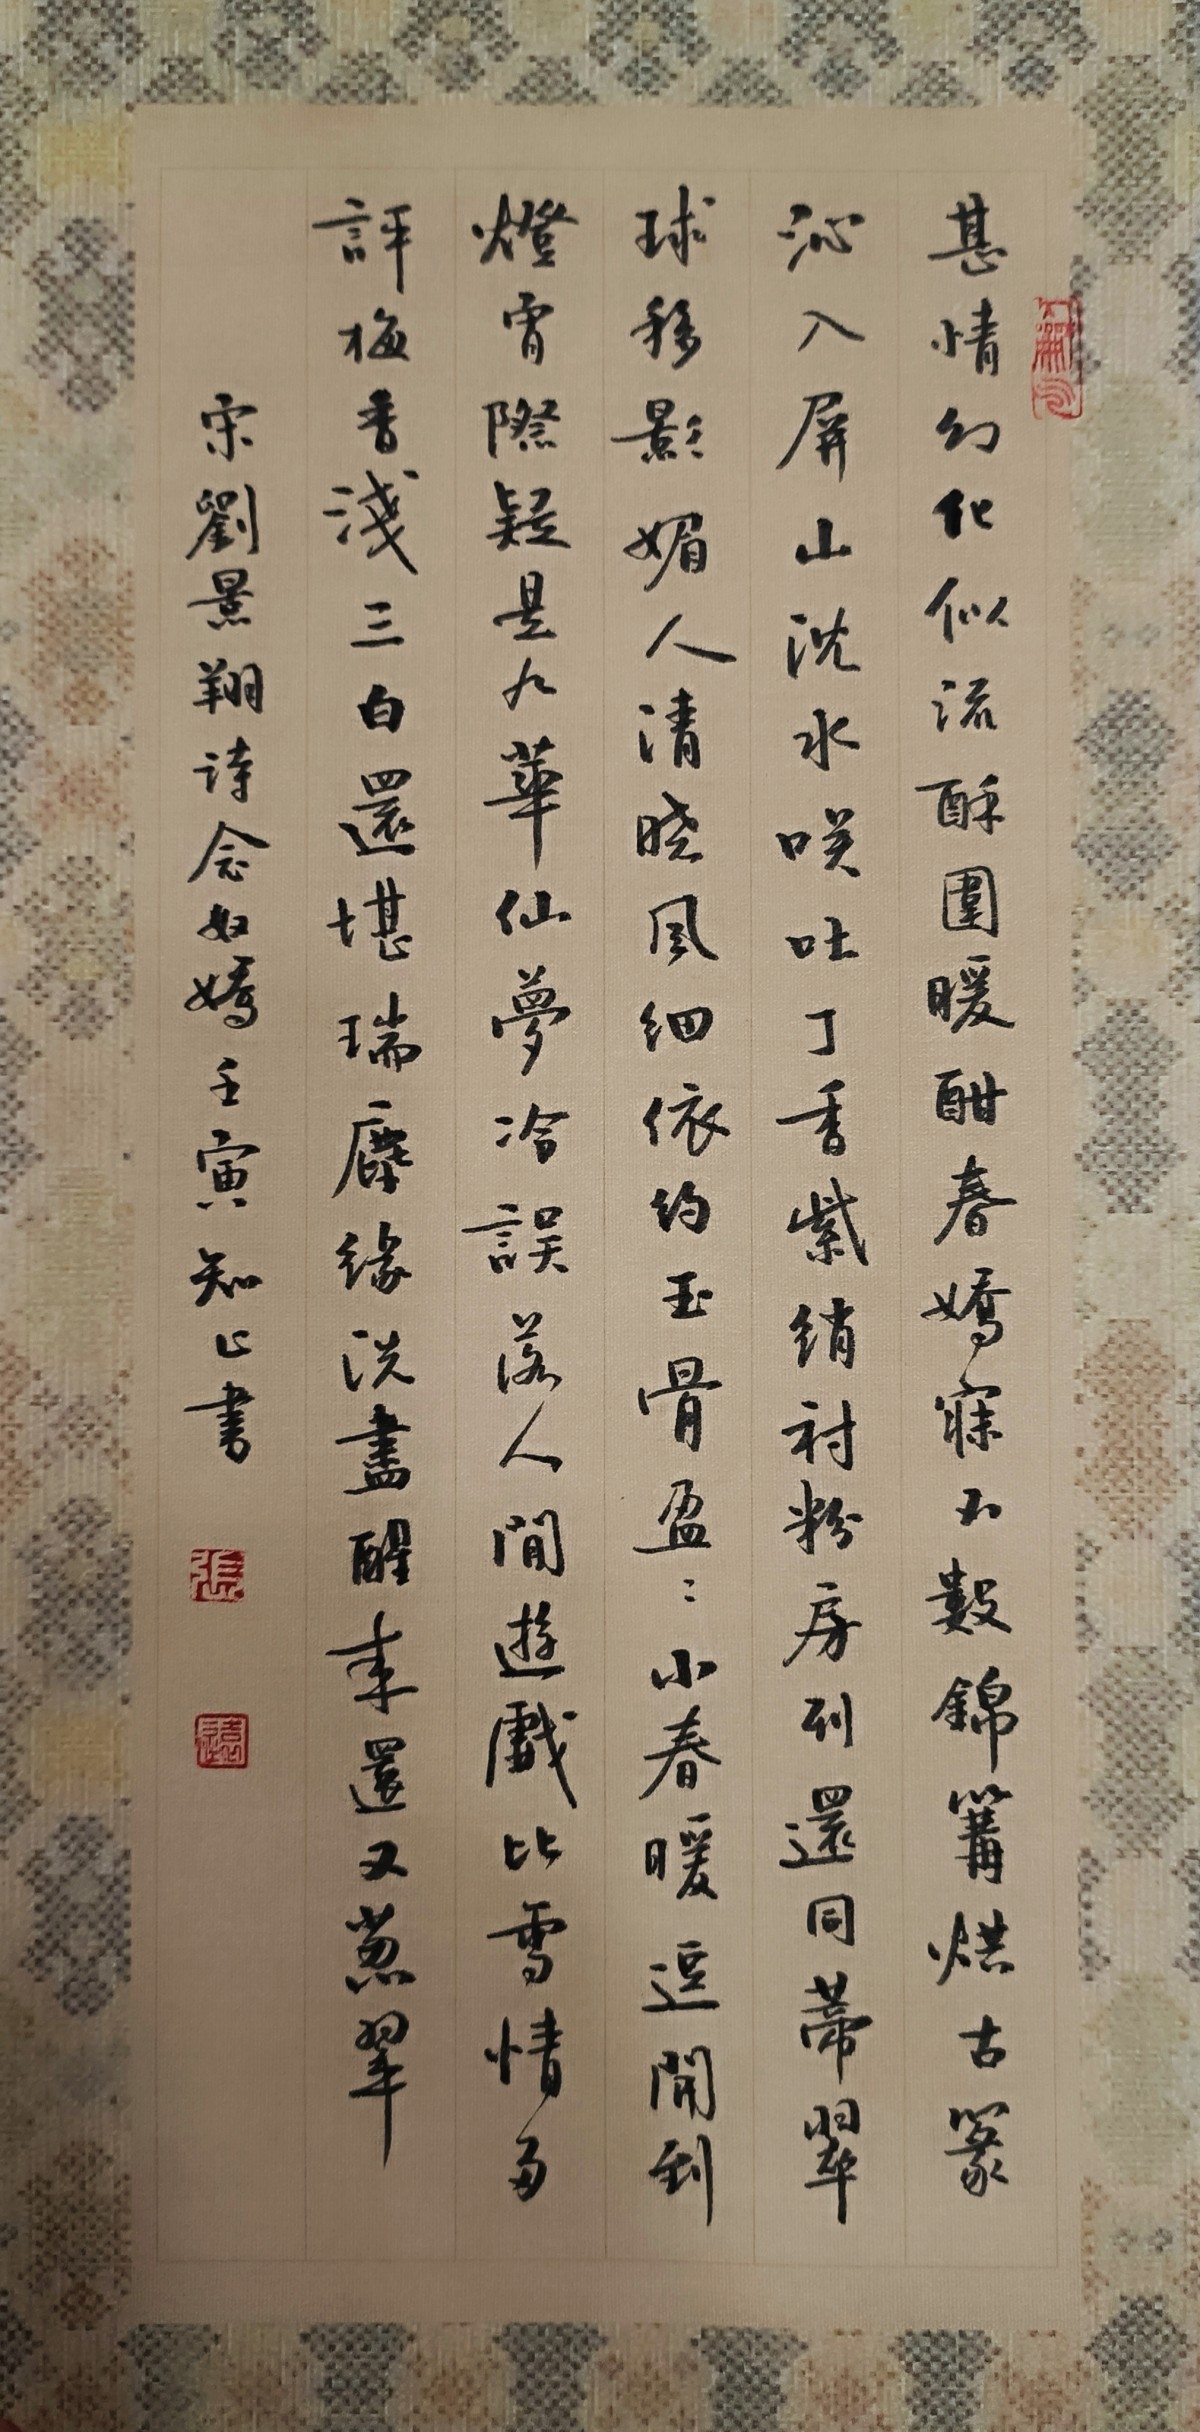 甚情幻化似流酥圍暖酣春嬌寐不數錦篝烘古篆
沁入屏山沈水咲吐丁香紫綃衬粉房列還同蒂翠
球移影媚人清曉風細依約玉骨盈〻小春暖逗閒到
燈宵際疑是九華仙夢冷誤落人間遊戲比雪情多
評梅香淺三白還堪瑞塵緣洗盡醒来還又葱翠
宋劉景翔詩念奴嬌壬寅知止書
張